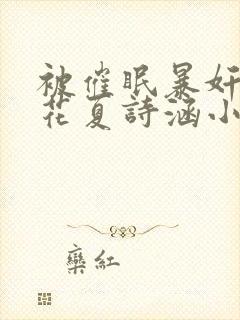 被催眠暴奸
花夏詩涵小
欒紅